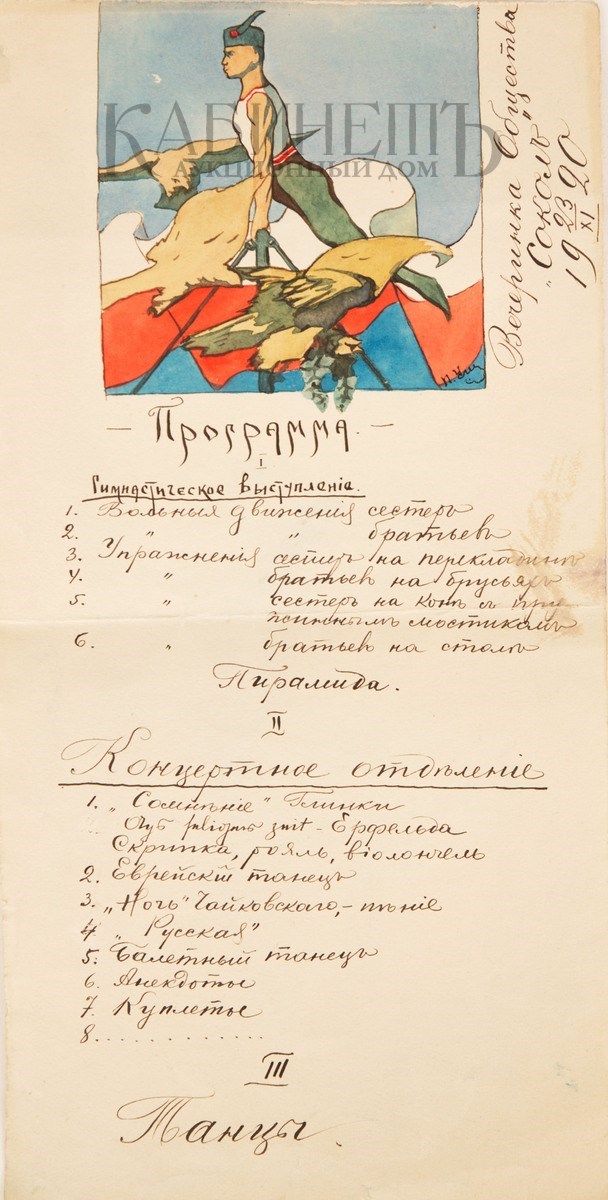 КАБИНЕТЪ
АУКЦИОННЫЙ ДОМ
Вечеринка Общества
„Соколъ"
19 23/XI 20
— Программа. —
I
Гимнастическое выступленіе.
1. Вольныя движенія сестеръ
2. " " братьевъ
3. Упражненія сестеръ на перекладинѣ
4. " братьевъ на брусьяхъ
5. " сестеръ на конѣ съ пру
жиннымъ мостикомъ
6. " братьевъ на столѣ
Пирамида.
II
Концертное отдѣленіе
1. „Сомнѣніе" Глинки
zeit - Ерфельда
Скрипка, рояль, віолончель
2. Еврейскій танецъ
3. „Ночь" Чайковскаго, - пѣніе
4 „Русская"
5. Балетный танецъ
6. Анекдоты
7. Куплеты
8. . . . . . . . . . . . .
III
Танцы.